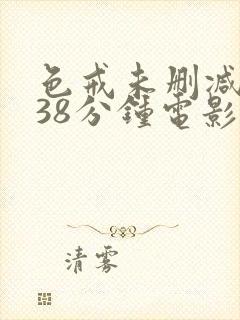 色戒未删减
38分鍾電影
清雾